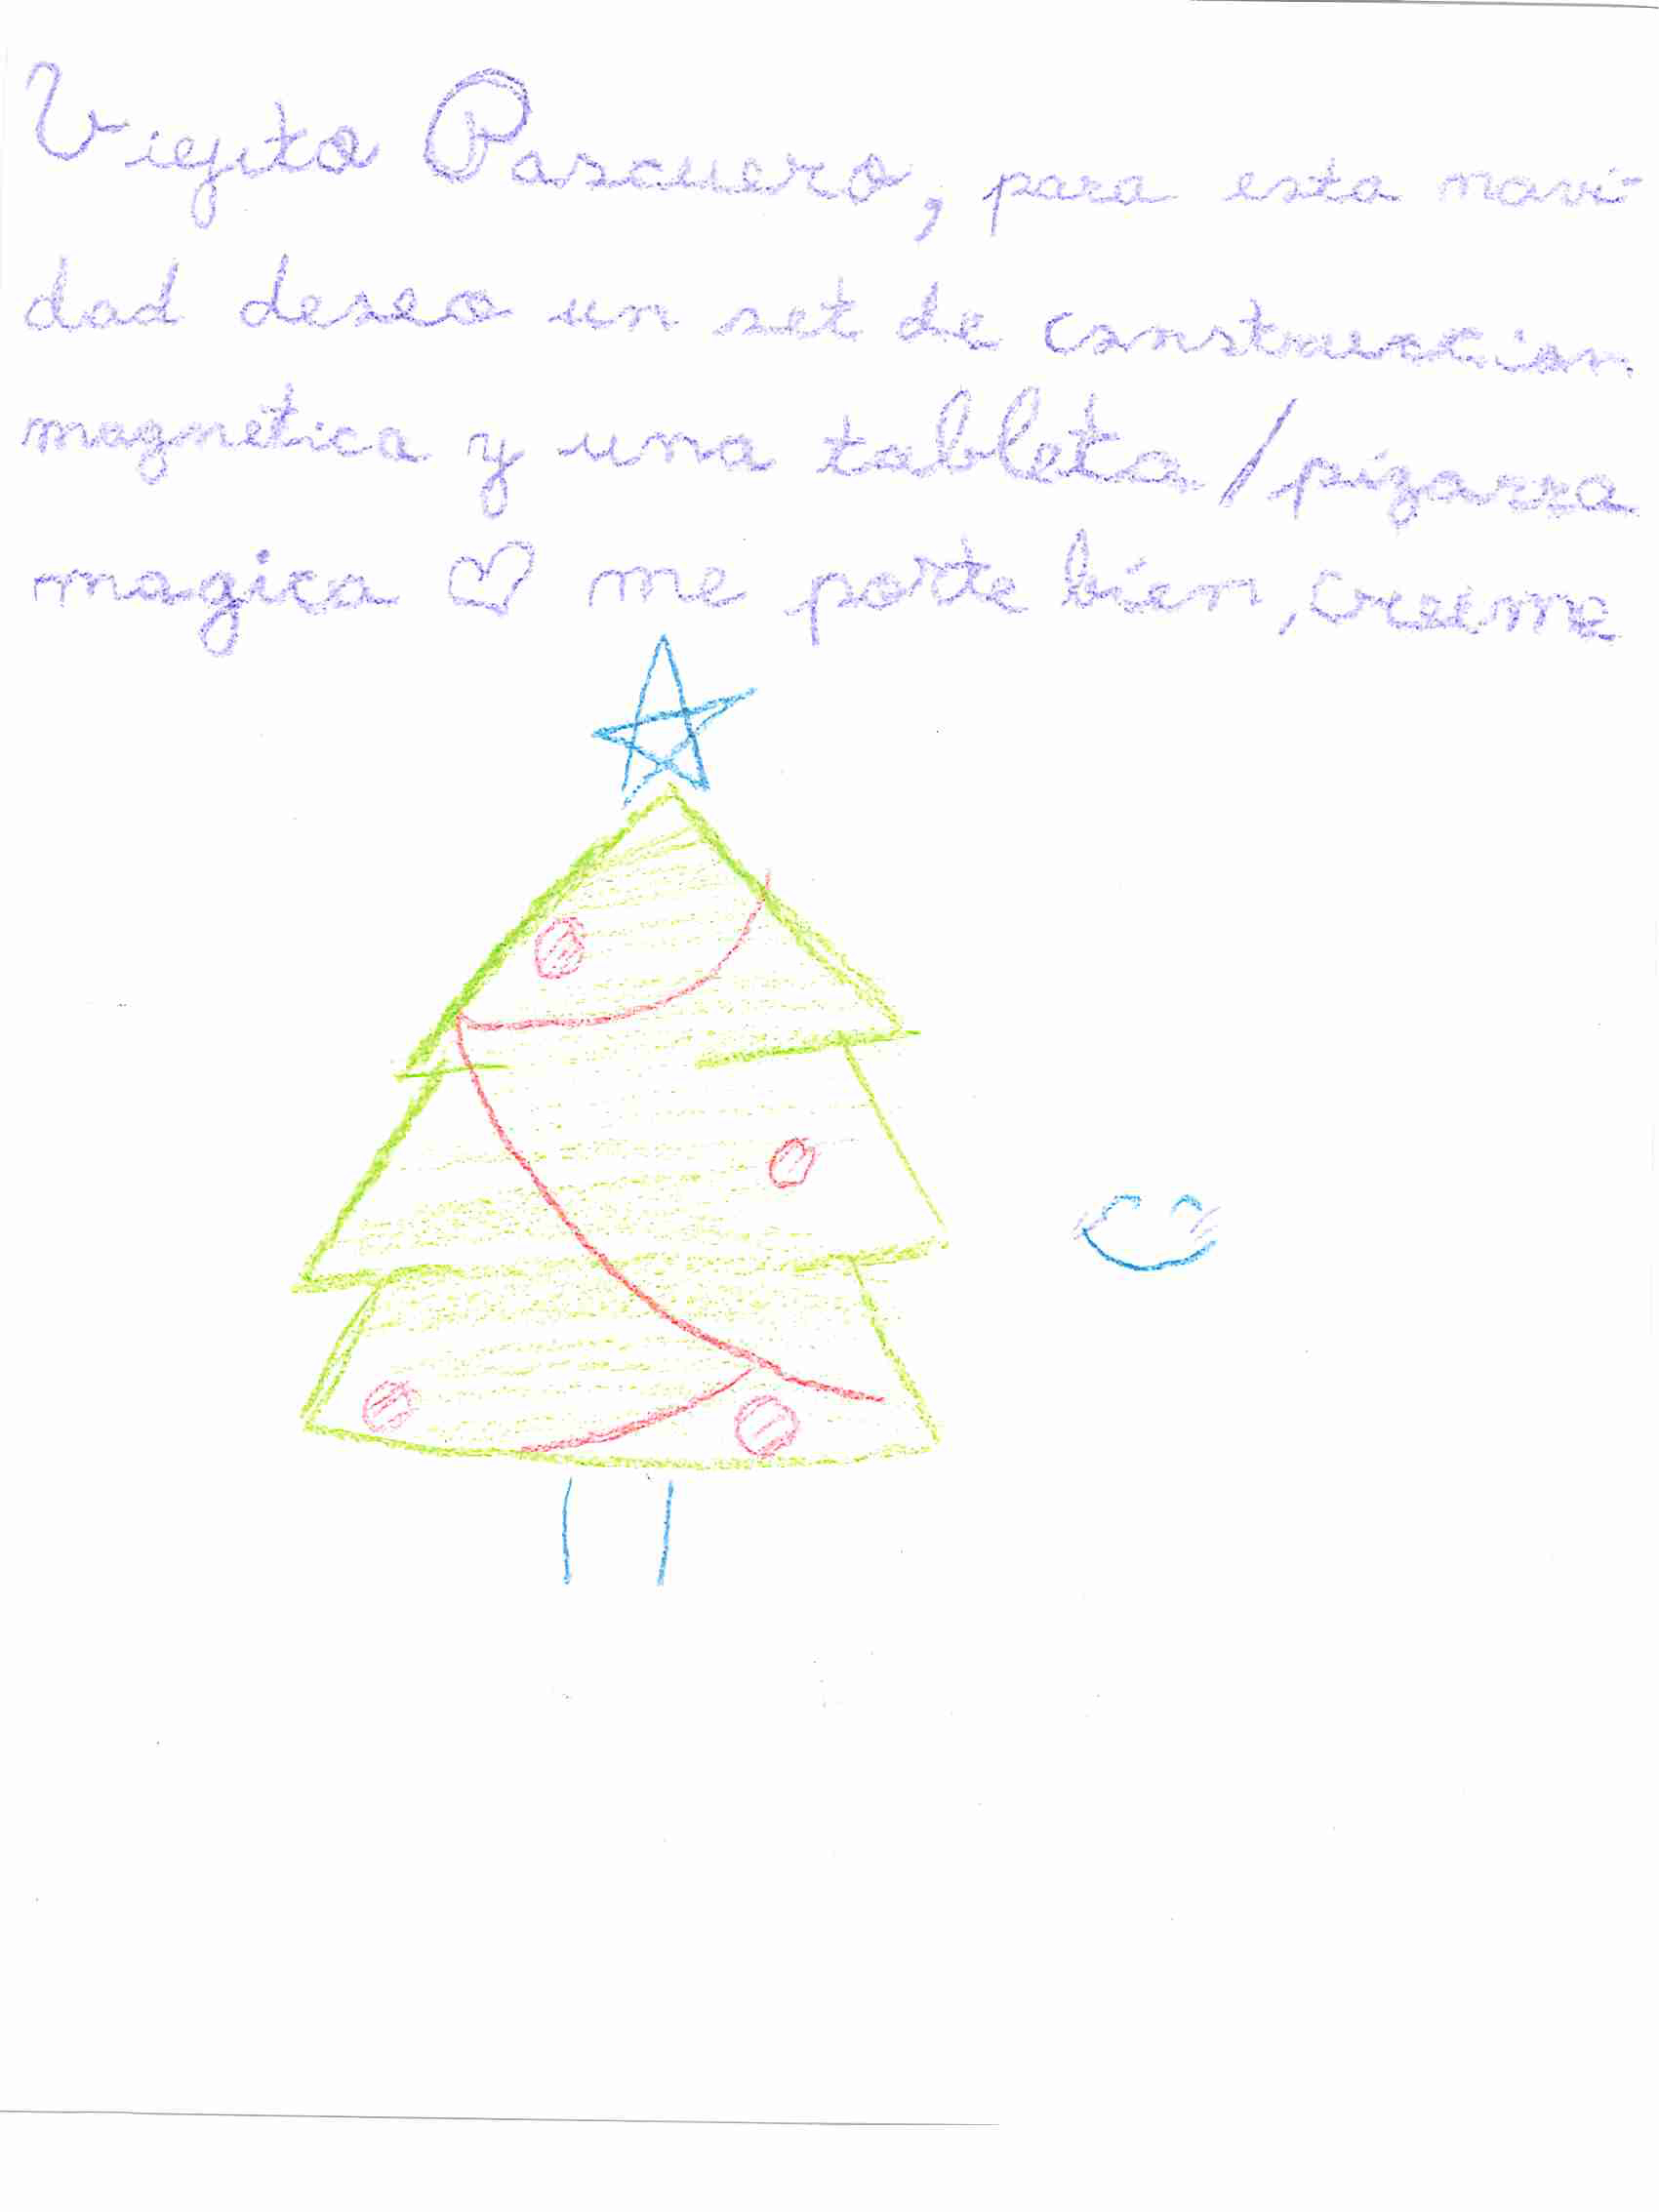 Viejito Pascuero, para esta navi-
dad deseo un set de construccion
magnética y una tableta/pizarra
magica ♡ me porte bien, creeme